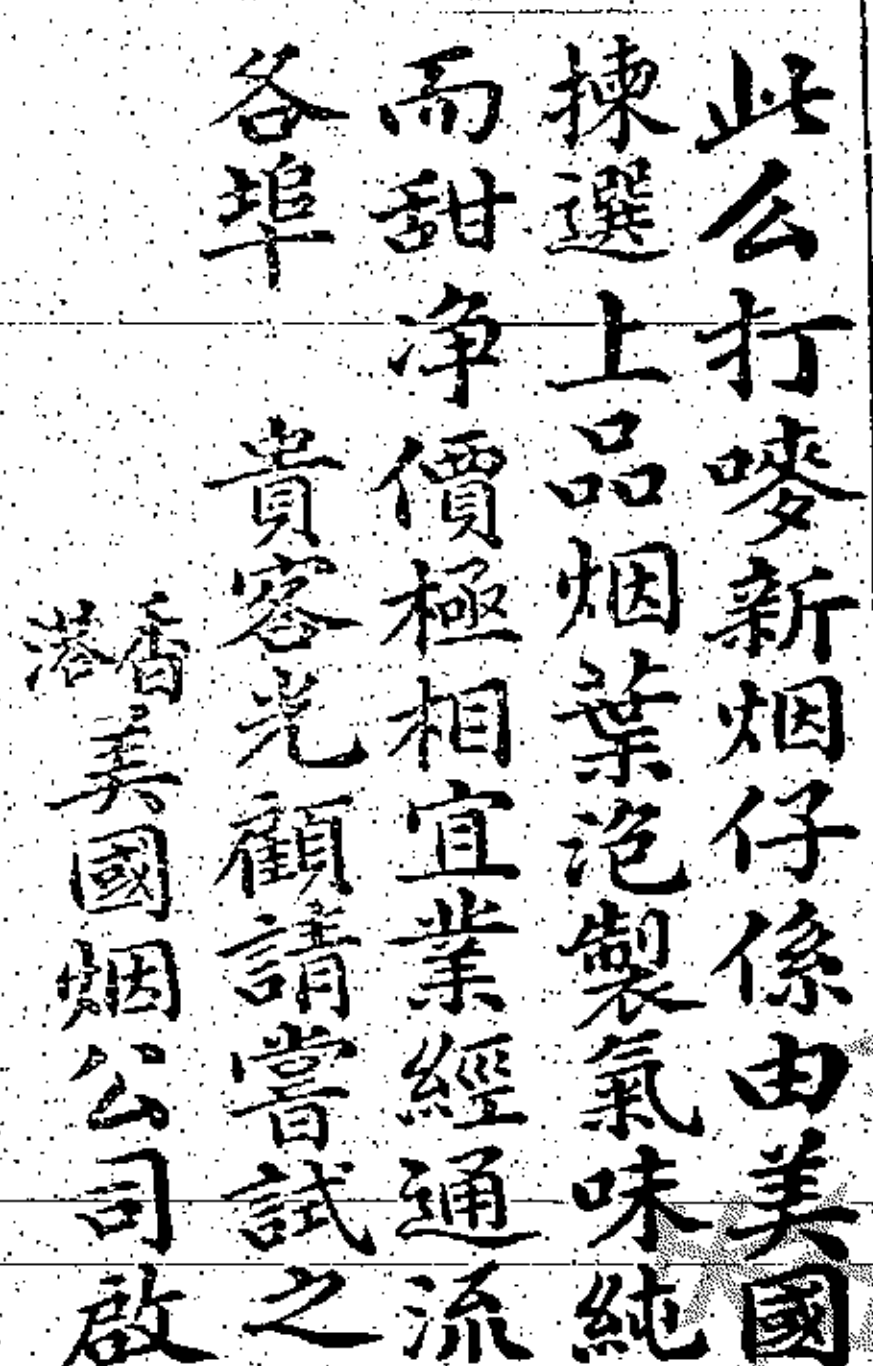 此么打嘜新烟仔係由美國
揀選上品烟葉泡製氣味純
而甜净價極相宜業經通流
各埠　貴客光顧請嘗試之
香港美國烟公司啟